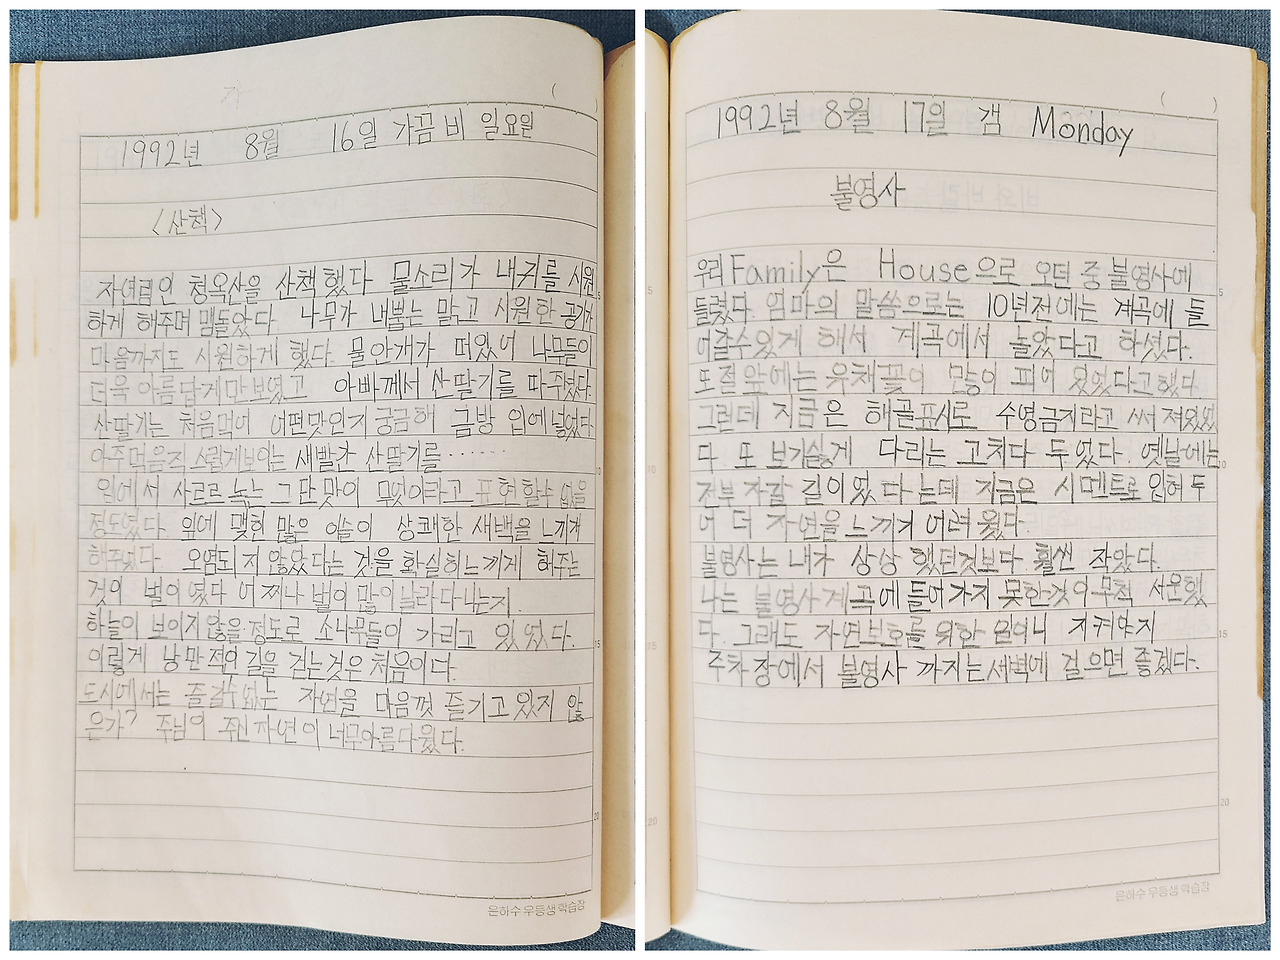 1992년 8월 16일 가끔 비 일요일
<산책>
자연림인 청옥산을 산책했다 물소리가 내귀를 시원
하게 해주며 맴돌았다. 나무가 내뿜는 맑고 시원한 공기가
마음까지도 시원하게 했다. 물안개가 떠있어 나무들이
더욱 아름답게만보였고 아빠께서 산딸기를 따주셨다.
산딸기는 처음먹어 어떤맛인지 궁금해 금방 입에넣었다
아주먹음직스럽게보이는 새빨간 산딸기를······
입에서 사르르녹는 그단맛이 무엇이라고 표현할수 없을
정도였다. 위에 맺힌 많은 이슬이 상쾌한 새벽을 느끼게
해주었다. 오염되지 않았다는 것을 확실히느끼게 해주는
것이 벌이였다 어찌나 벌이 많이날라다니는지.
하늘이 보이지않을정도로 소나무들이 가리고 있었다.
이렇게 낭만적인 길을 걷는것은 처음이다.
도시에서는 즐길수없는 자연을 마음껏 즐기고있지 않
은가? 주님이 주신자연이 너무아름다웠다.
은하수 우등생 학습장
1992년 8월 17일 갬 Monday
불영사
우리Family은 House으로 오던 중 불영사에
들렸다. 엄마의 말씀으로는 10년전에는 계곡에 들
어갈수있게 해서 계곡에서 놀았다고 하셨다.
또절앞에는 유채꽃이 많이 피어 있었다고했다.
그런데 지금은 해골표시로 수영금지라고 써져있었
다. 또 보기싫게 다리는 고쳐다 두었다. 옛날에는
전부 자갈 길이었다는데 지금은 시멘트로 입혀 두
어 더 자연을느끼기 어려웠다.
불영사는 내가 상상했던것보다 훨씬 작았다.
나는 불영사계곡에들어가지 못한것이무척 서운했
다. 그래도 자연보호를 위한 일이니 지켜야지
주차장에서 불영사 까지는새벽에 걸으면 좋겠다.
은하수 우등생 학습장